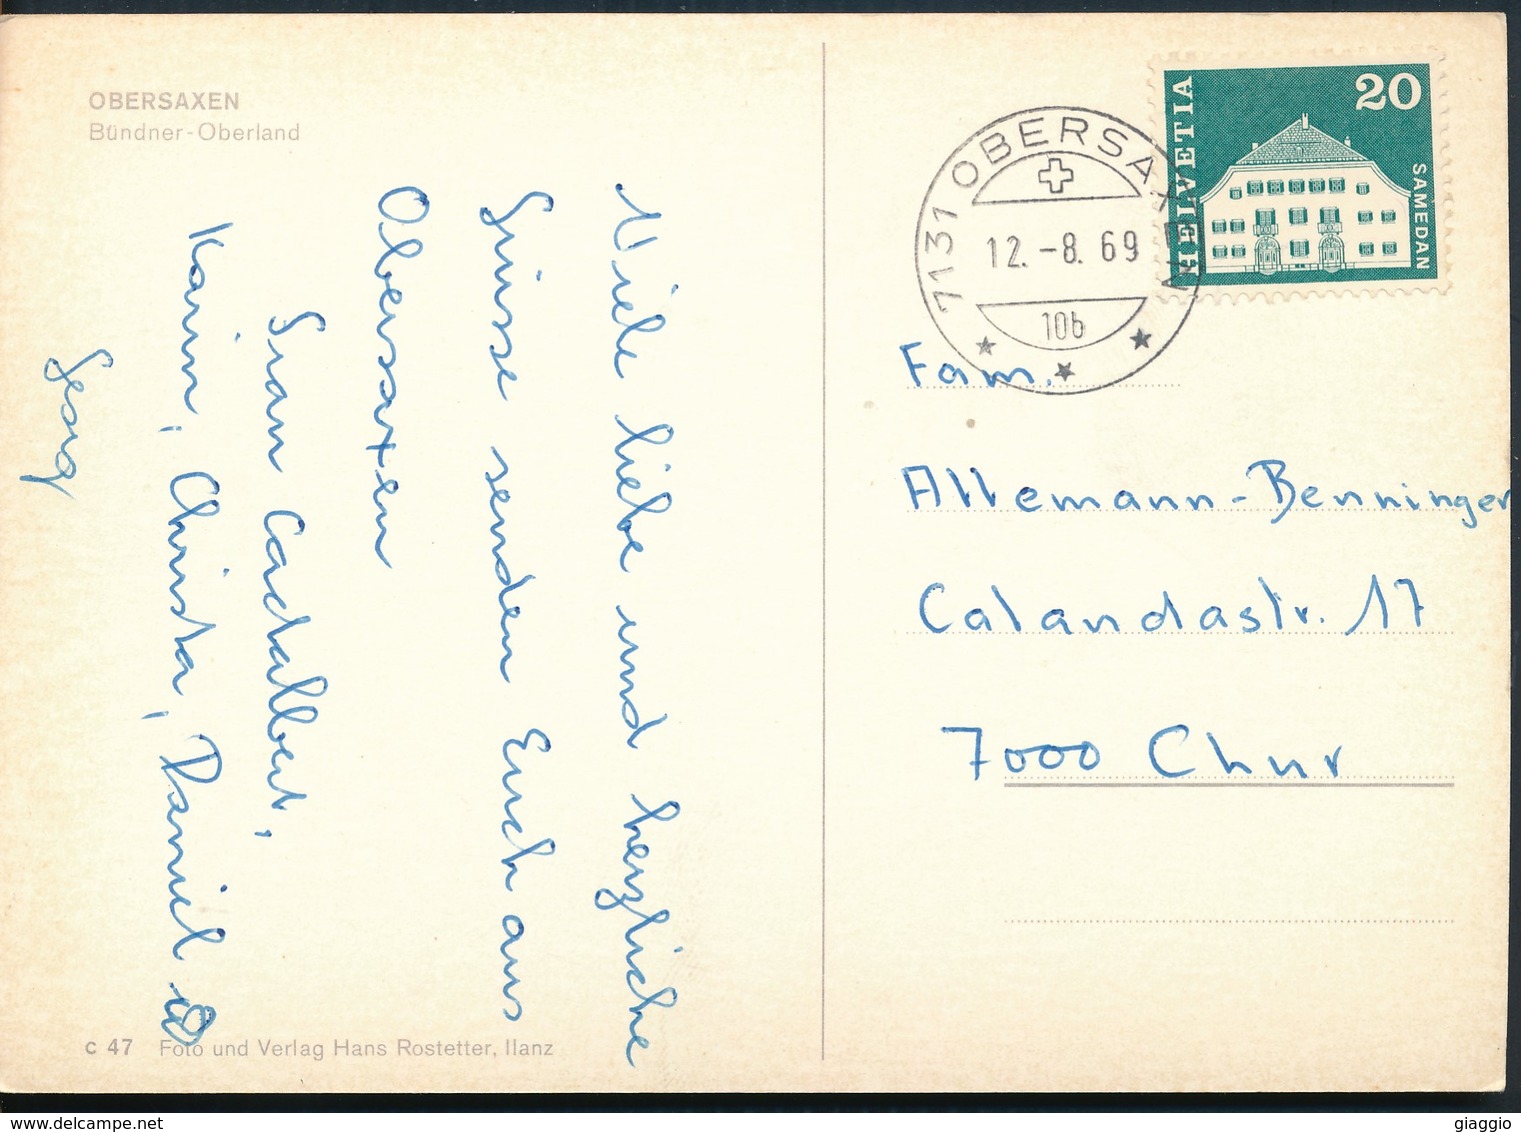 OBERSAXEN
Bündner-Oberland
Viele liebe und herzliche
Grüsse senden Euch aus
Obersaxen
Cadalbert,
Karin, Christa, Daniel
Georg
c 47 Foto und Verlag Hans Rostetter, Ilanz
7131 OBERSAXEN
12.-8.69
10b
HELVETIA
20
SAMEDAN
Fam.
Allemann-Benninger
Calandastr. 17
7000 Chur
giaggio